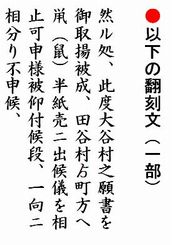 ●以下の翻刻文（一部）
然ル処、此度大谷村之願書を
御取揚被成、田谷村ゟ町方へ
鼡（鼠）半紙売ニ出候儀を相
止可申様被仰付候段、一向ニ
相分り不申候、